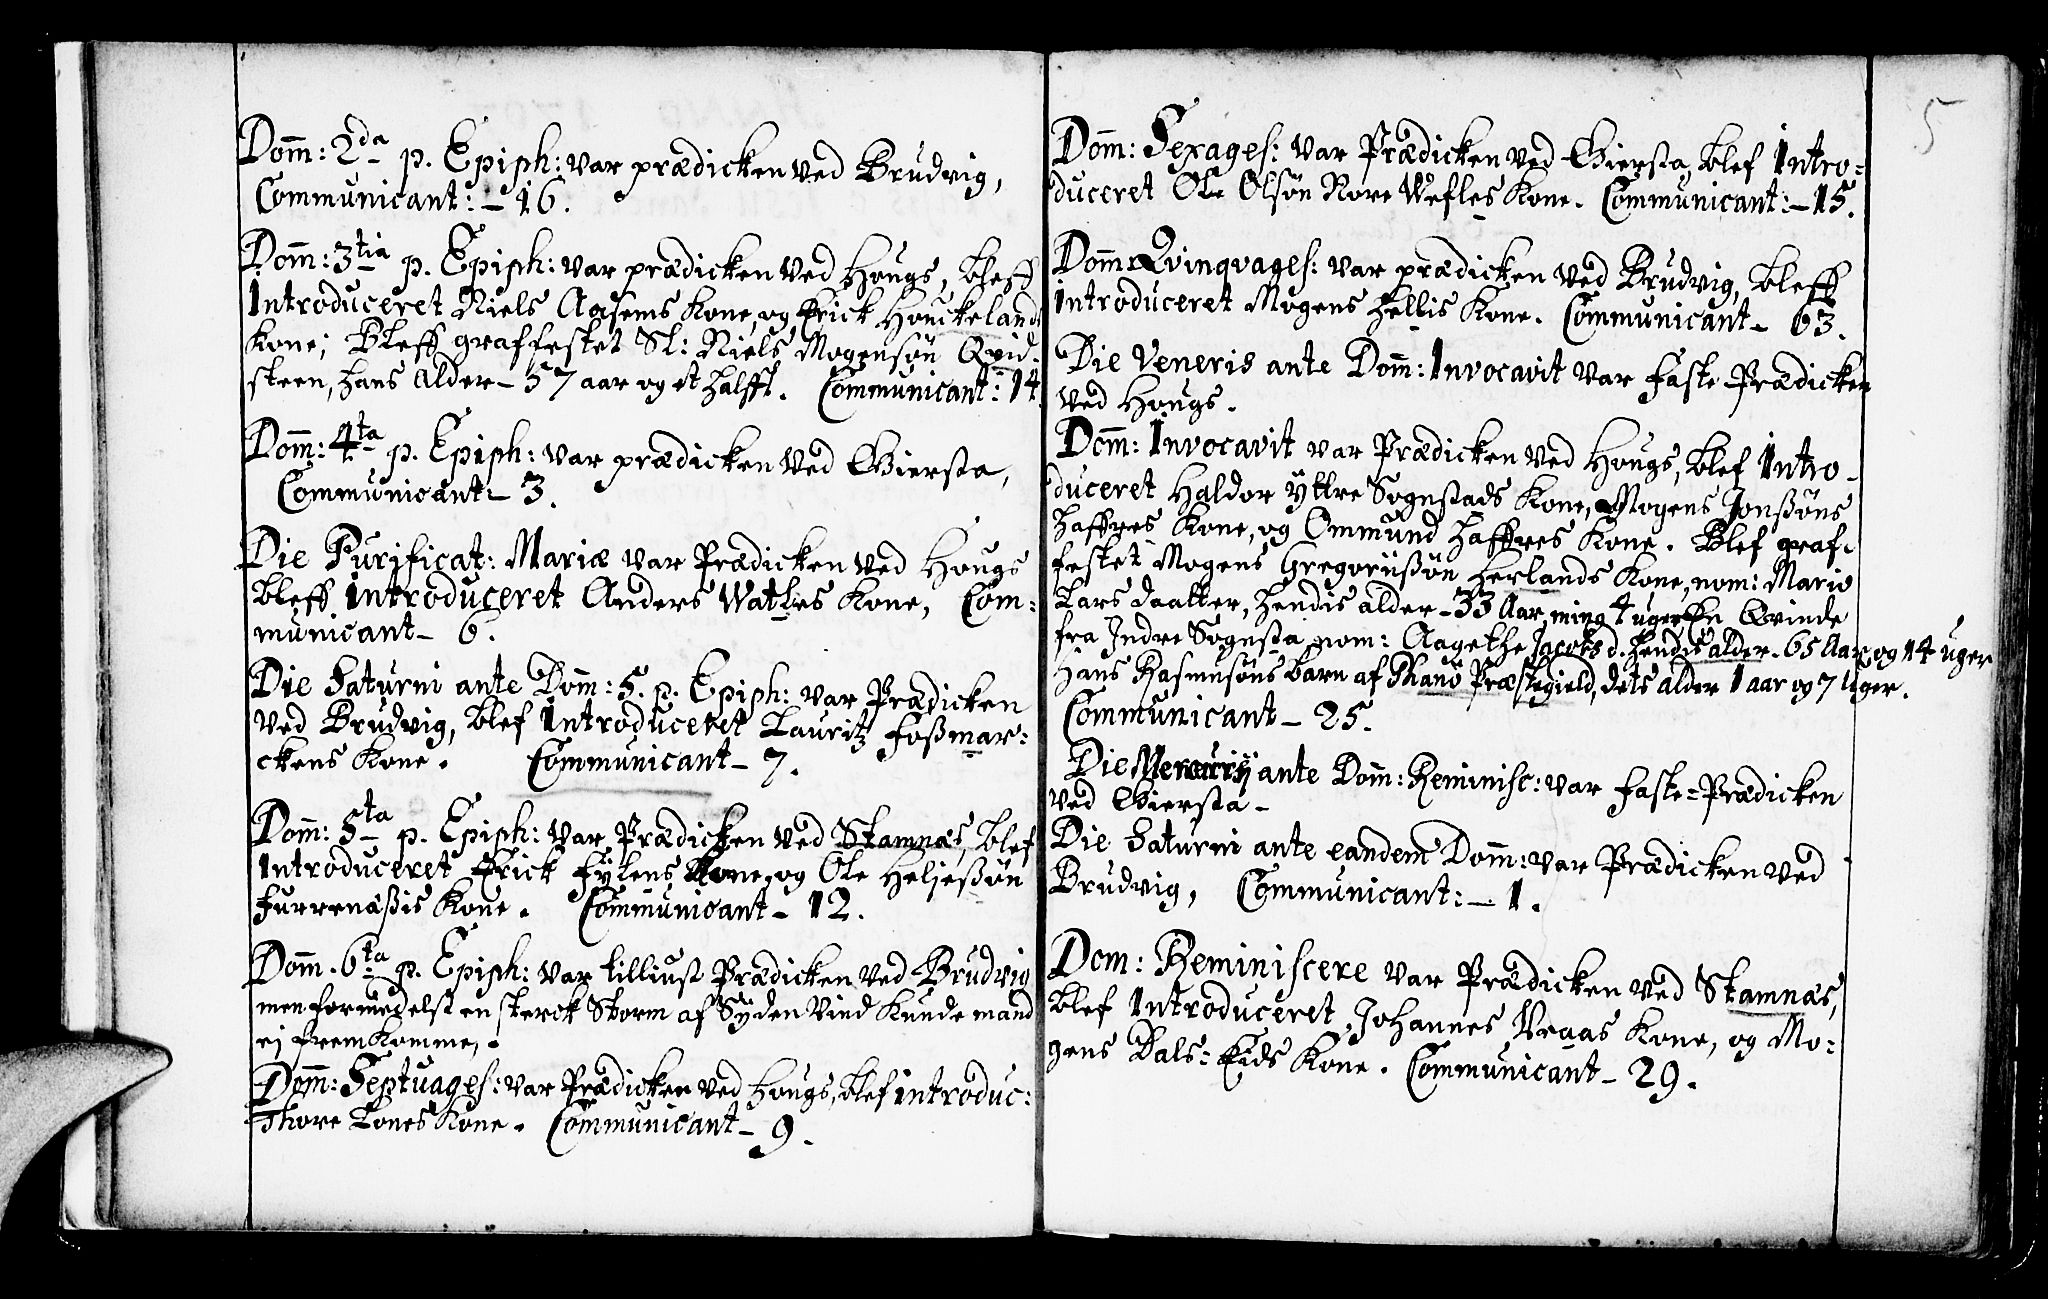 Dom̅: 2da p. Epiph: var prædicken ved Brudvig,
Communicant: – 16.
Dom̅: 3tia p. Epiph: var prædicken ved Hougs, bleff
Introduceret Niels Aasems Kone, og Erick Houckelands
Kone; Bleff graffestet Sl: Niels Mogensøn Qvid-
steen, hans alder – 57 aar og et halfft. Communicant: 14.
Dom̅: 4ta p. Epiph: var prædicken ved Gjersta,
Communicant – 3.
Die Purificat: Mariæ var Prædicken ved Hougs
bleff Introduceret Anders Watles Kone, Com:
municant – 6.
Die Saturni ante Dom̅: 5. p. Epiph: var Prædicken
ved Brudvig, blef Introduceret Lauritz Foßmar:
ckens Kone. Communicant – 7.
Dom̅: 5ta p. Epiph: var Prædicken ved Stamnæs, blef
Introduceret Erick Fylens Kone, og Ole Heljeßøn
Furrenæßis Kone. Communicant – 12.
Dom̅. 6ta p. Epiph: var tilliust Prædicken ved Brudvig
men formedelst en sterck Storm af Syden Vind Kunde mand
ej fremkomme.
Dom̅: Septuages: var Prædicken ved Hougs, blef introduc:
Thore Lones Kone. Communicant – 9.
5
Dom̅: Sexages: var Prædicken ved Gjersta, blef Intro:
duceret Ole Olsøn Nore Wefles Kone. Communicant: – 15.
Dom̅: Qvinqvages: var prædicken ved Brudvig, bleff
introduceret Mogens Hellis Kone. Communicant – 63.
Die Veneris ante Dom̅: Invocavit var Faste-Prædicken
ved Hougs.
Dom̅: Invocavit var Prædicken ved Hougs, blef Intro-
duceret Haldor Yttre Sognstads Kone, Mogens Jonßøns
Haffres Kone, og Ommund Haffres Kone. Blef graf-
festet Mogens Gregoriißøn Herlands Kone, nom: Mario
Lars daatter, hendis alder – 33 Aar ming 4 uger En Qvinde
fra Indre Sognsta nom: Aagethe Jacobsd. hendis alder. 65 Aar og 14 uger
Hans Rasmusøns barn af Phanö Præstegield, dets alder 1 aar og 7 uger.
Communicant – 25.
Die Mercurij ante Dom̅: Reminisc: var Faste=Prædicken
ved Gjersta –
Die Saturni ante eandem Dom̅: var Prædicken ved
Brudvig, Communicant: – 1.
Dom: Reminiscere var Prædicken ved Stamnæs,
blef Introduceret Johannes Vraas Kone, og Mo:
gens Dals=Eids Kone. Communicant – 29.